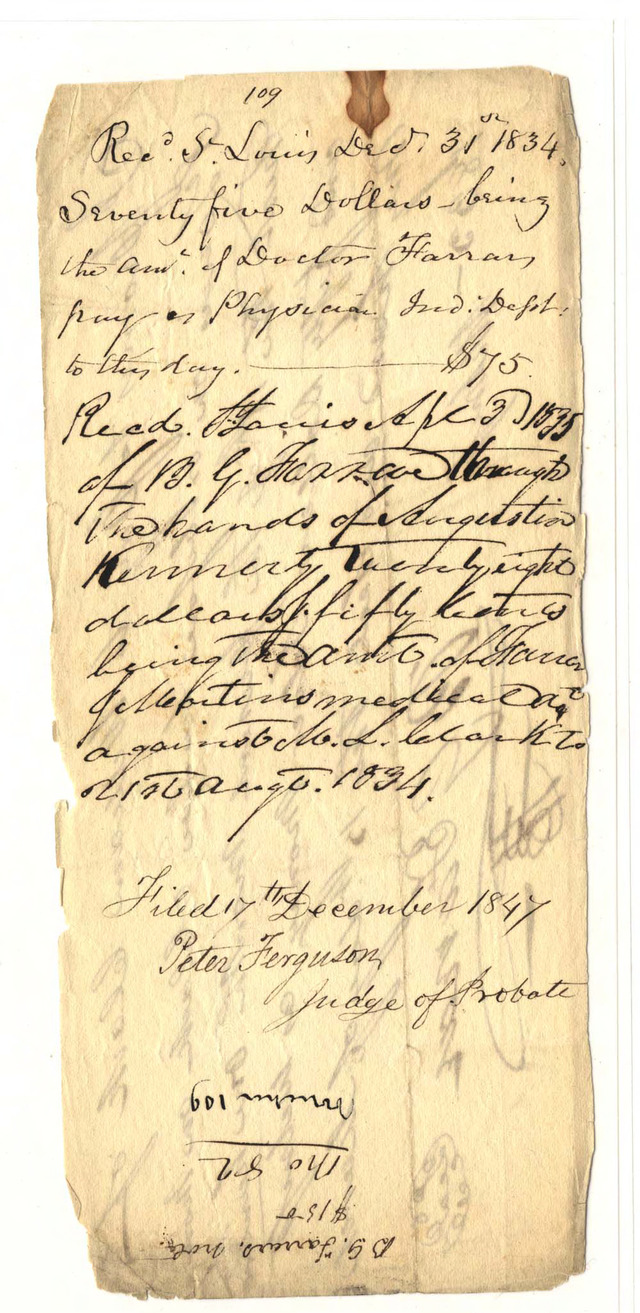 109
Recd. St. Louis Decr. 31st 1834.
Seventy five Dollars - being
the amt. of Doctor Farrars
pay as Physician Ind: Dept:
to this day. $75.
Recd. St Louis Apl 3d 1835
of B. G. Farrar through
the hands of Augustin
Kennerly Twenty eight
dollars & fifty Cents
being the amt. of Farrar
& Martins medical act
against M. L. Clark to
21st augt. 1834.
Filed 17th December 1847
Peter Ferguson
Judge of Probate
Number 109
No 52
$155
B G. Farrars. note.